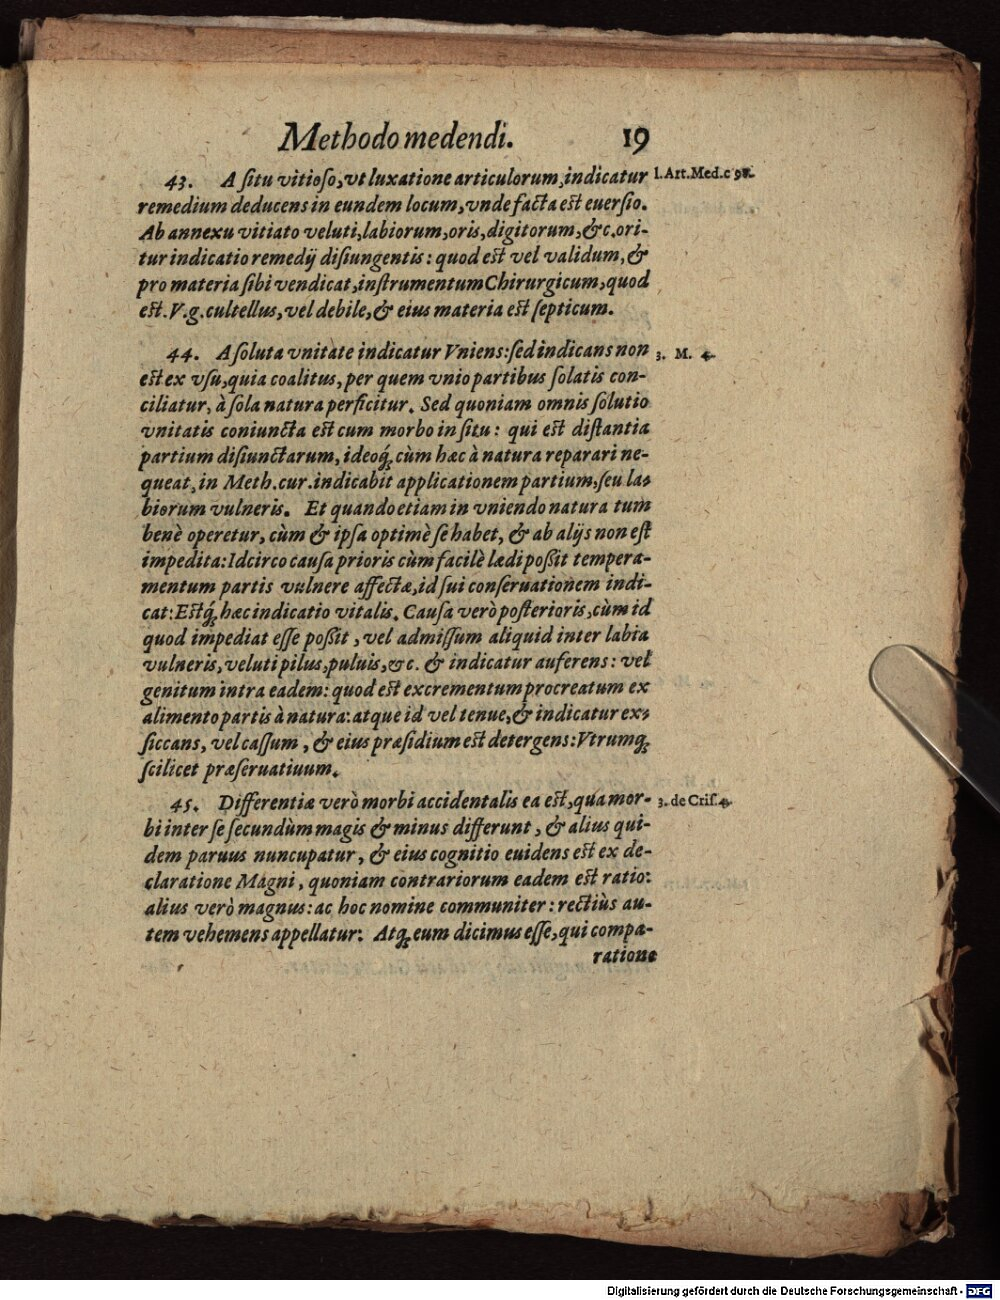 Methodo medendi. 19
43. A ſitu vitioſo, vt luxatione articulorum, indicatur l. Art. Med. c 98.
remedium deducens in eundem locum, vnde facta est euerſio.
Ab annexu vitiato veluti, labiorum, oris, digitorum, &c. ori-
tur indicatio remedij diſiungentis: quod est vel validum, &
pro materia ſibi vendicat, inſtrumentum Chirurgicum, quod
est. V. g. cultellus, vel debile, & eius materia est ſepticum.
44. A ſoluta vnitate indicatur Vniens: ſed indicans non 3. M. 4.
est ex vſu, quia coalitus, per quem vnio partibus ſolatis con-
ciliatur, à ſola natura perficitur. Sed quoniam omnis ſolutio
vnitatis coniuncta est cum morbo in ſitu: qui est diſtantia
partium diſiunctarum, ideoq́; cùm hæc à natura reparari ne-
queat, in Meth. cur. indicabit applicationem partium, ſeu la-
biorum vulneris. Et quando etiam in vniendo natura tum
benè operetur, cùm & ipſa optimè ſe habet, & ab alijs non eſt
impedita: Idcirco cauſa prioris cùm facilè lædi poßit tempera-
mentum partis vulnere affectæ, id ſui conſeruationem indi-
cat: Estq́; hæc indicatio vitalis. Cauſa verò poſterioris, cùm id
quod impediat eſſe poßit, vel admiſſum aliquid inter labia
vulneris, veluti pilus, puluis, &c. & indicatur auferens: vel
genitum intra eadem: quod est excrementum procreatum ex
alimento partis à natura: atque id vel tenue, & indicatur ex-
ſiccans, vel caſſum, & eius præſidium est detergens: Vtrumq;
ſcilicet præſeruatiuum.
45. Differentiæ verò morbi accidentalis ea est, qua mor- 3. de Criſ. 4.
bi inter ſe ſecundùm magis & minus differunt, & alius qui-
dem paruus nuncupatur, & eius cognitio euidens est ex de-
claratione Magni, quoniam contrariorum eadem est ratio:
alius verò magnus: ac hoc nomine communiter: rectiùs au-
tem vehemens appellatur: Atq; eum dicimus eſſe, qui compa-
ratione
Digitalisierung gefördert durch die Deutsche Forschungsgemeinschaft - DFG